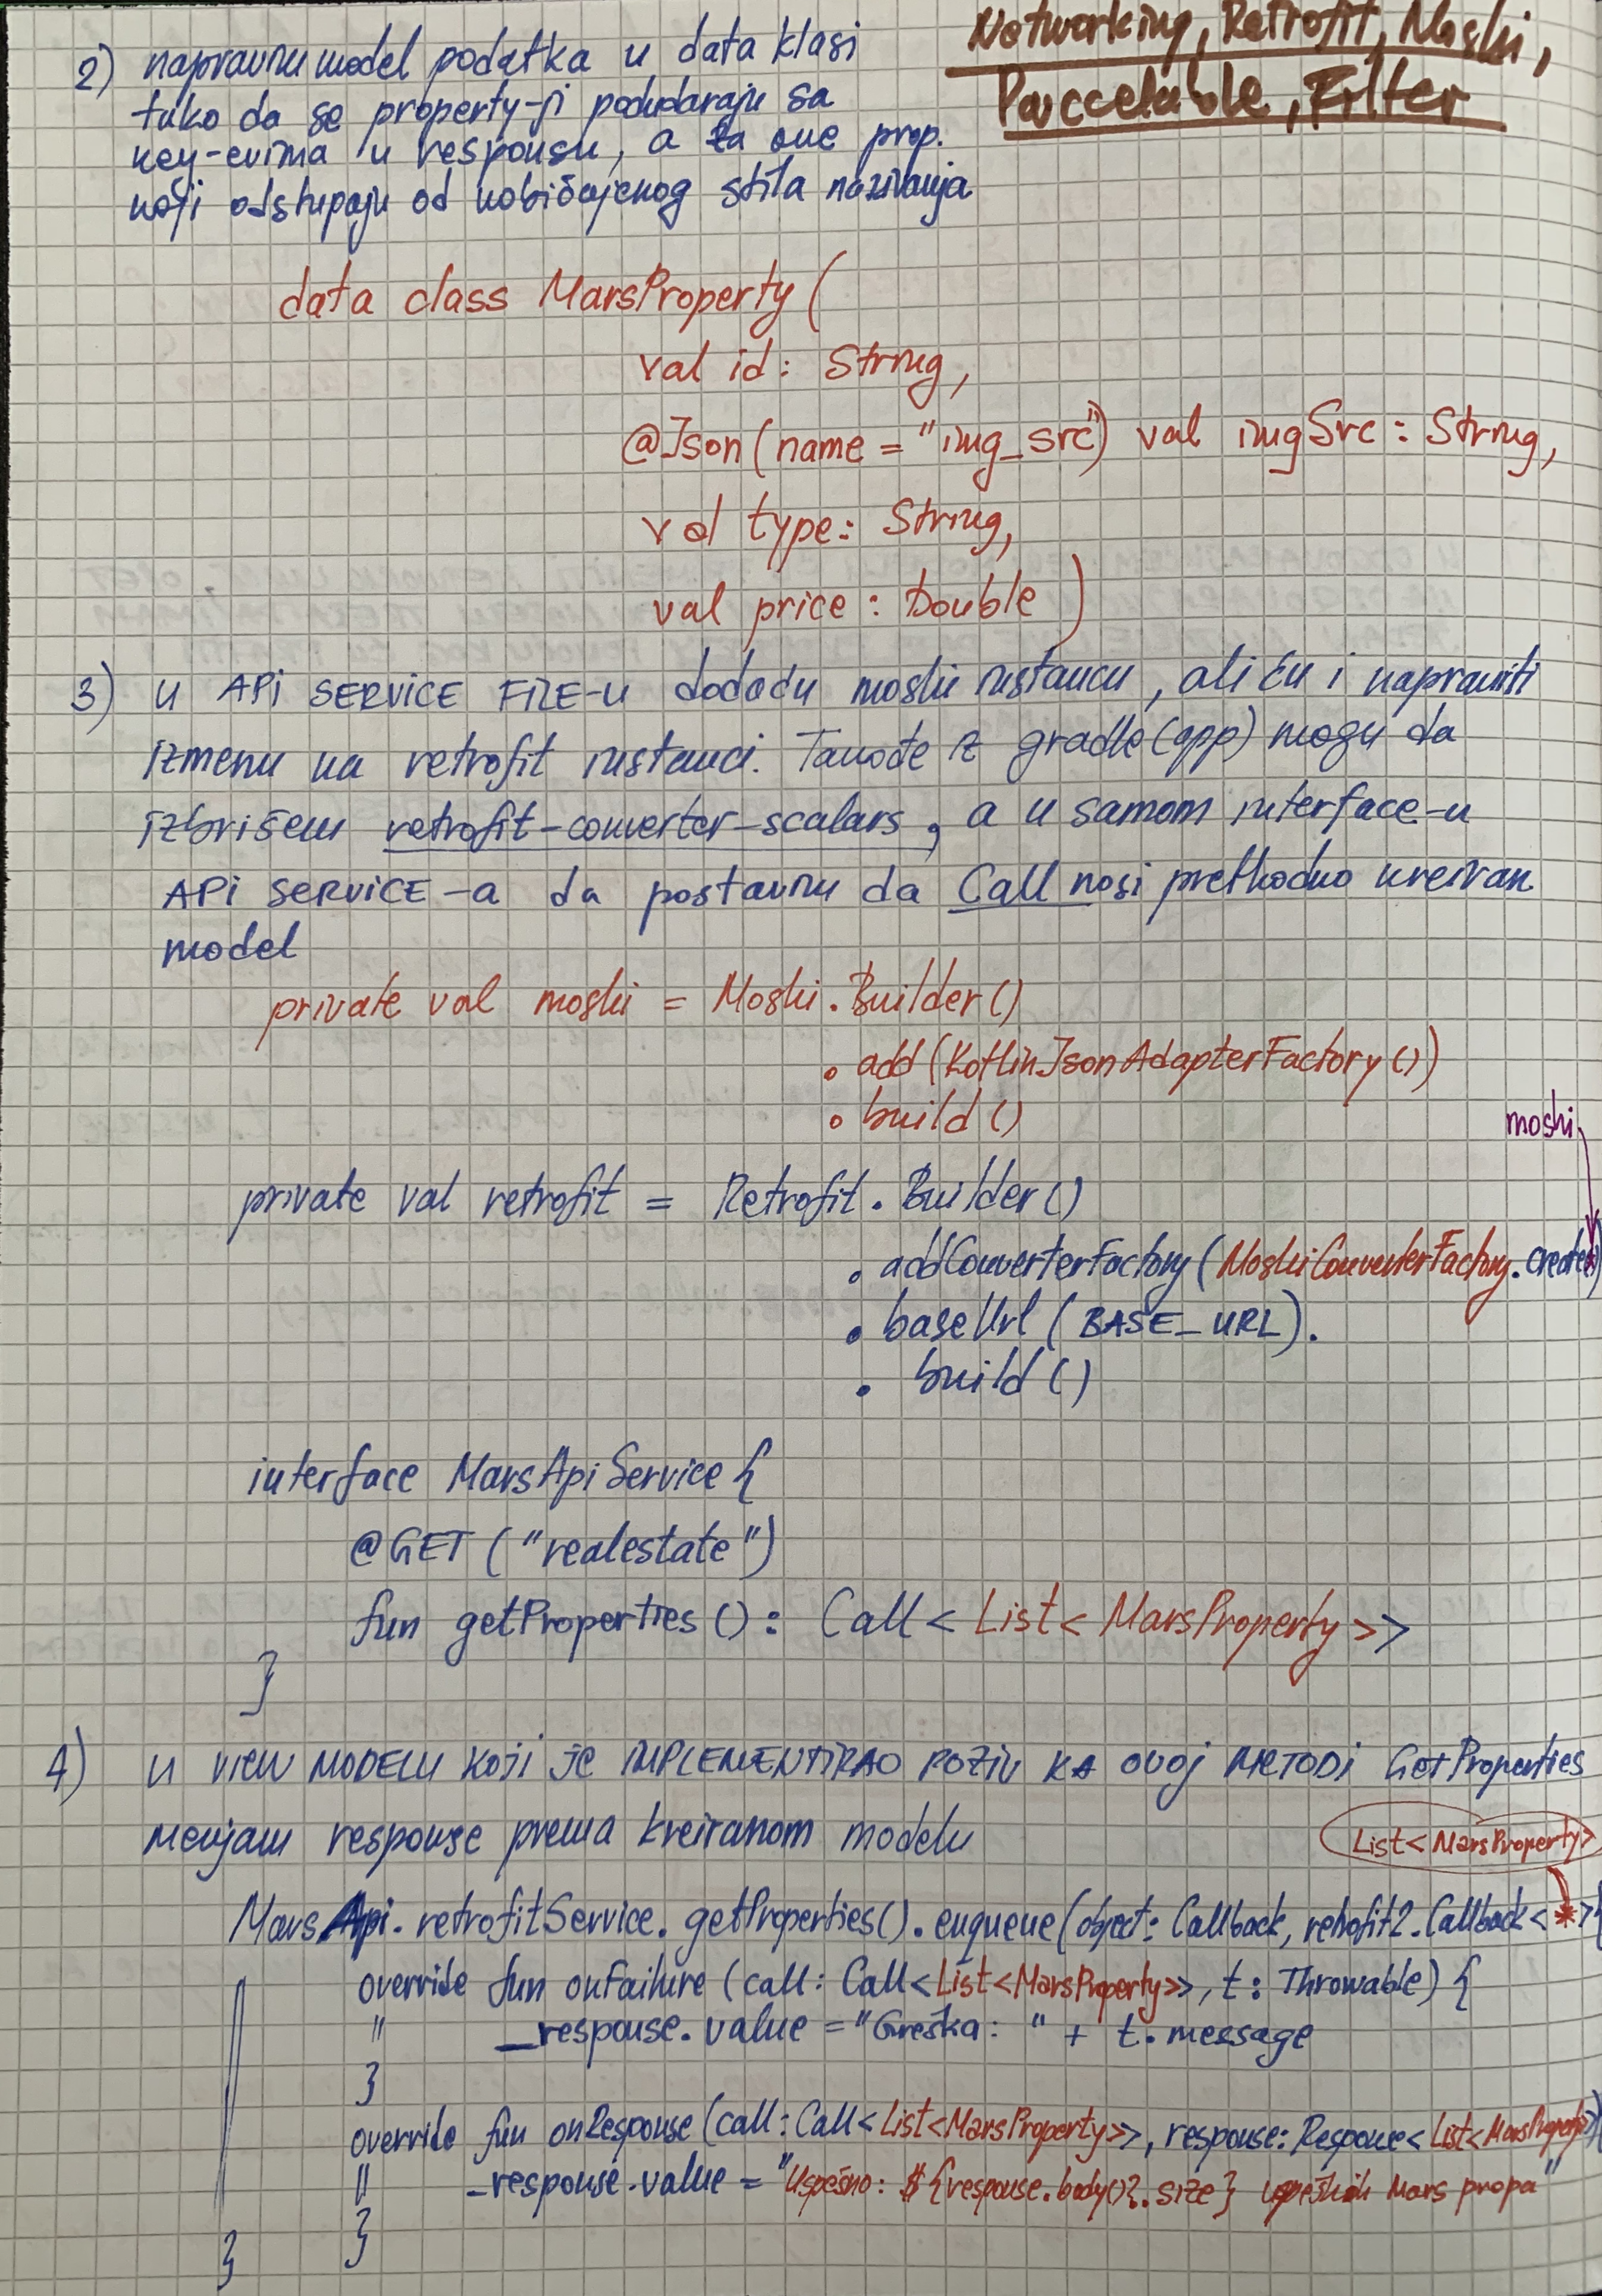 Networking, Retrofit, Moshi,
Parccelable, Filter
2) napravim model podatka u data klasi
tako da se property-ji podudaraju sa
key-evima u responsu, a za one prop.
koji odstupaju od uobičajenog stila nazivanja
data class MarsProperty(
val id: String,
@Json(name = "img_src") val imgSrc: String,
val type: String,
val price: Double )
3) U API SERVICE FILE-U dodadu moshi instancu, ali ću i napraviti
izmenu na retrofit instanci. Takođe iz gradle(app) mogu da
izbrišem retrofit-converter-scalars, a u samom interface-u
API SERVICE-a da postavim da Call nosi prethodno kreiran
model
private val moshi = Moshi.Builder()
.add(KotlinJsonAdapterFactory())
.build()
moshi
private val retrofit = Retrofit.Builder()
.addConverterFactory(MoshiConverterFactory.create()
.baseUrl(BASE_URL).
.build()
interface MarsApiService{
@GET("realestate")
fun getProperties(): Call<List<MarsProperty>>
}
4) U VIEW MODELU KOJI JE IMPLEMENTIRAO POZIV KA OVOJ METODI GetProperties
menjam response prema kreiranom modelu
List<MarsProperty>
MarsApi.retrofitService.getProperties().enqueue(object: Callback, retrofit2.Callback<*>{
override fun onFailure(call: Call<List<MarsProperty>>, t: Throwable) {
" _response.value = "Greška: " + t.message
}
override fun onResponse(call: Call<List<MarsProperty>>, response: Response<List<MarsProperty>>)
" _response.value = "Uspešno: ${response.body()?.size} Mars propa"
}
}